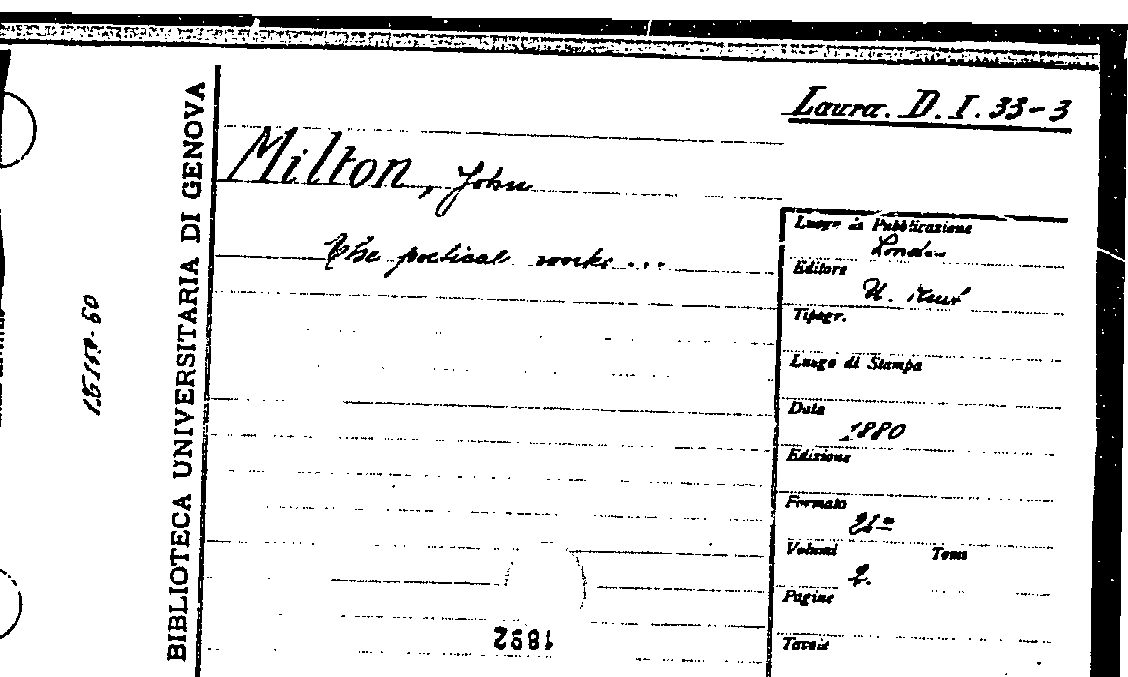 Laura. D. I. 33-3
Milton, John
The poetical works...
BIBLIOTECA UNIVERSITARIA DI GENOVA
Luogo di Pubblicazione
Editore
Tipogr.
Luogo di Stampa
Data
1880
Edizione
Formato
Volumi Tomi
2.
Pagine
Tavole
1892